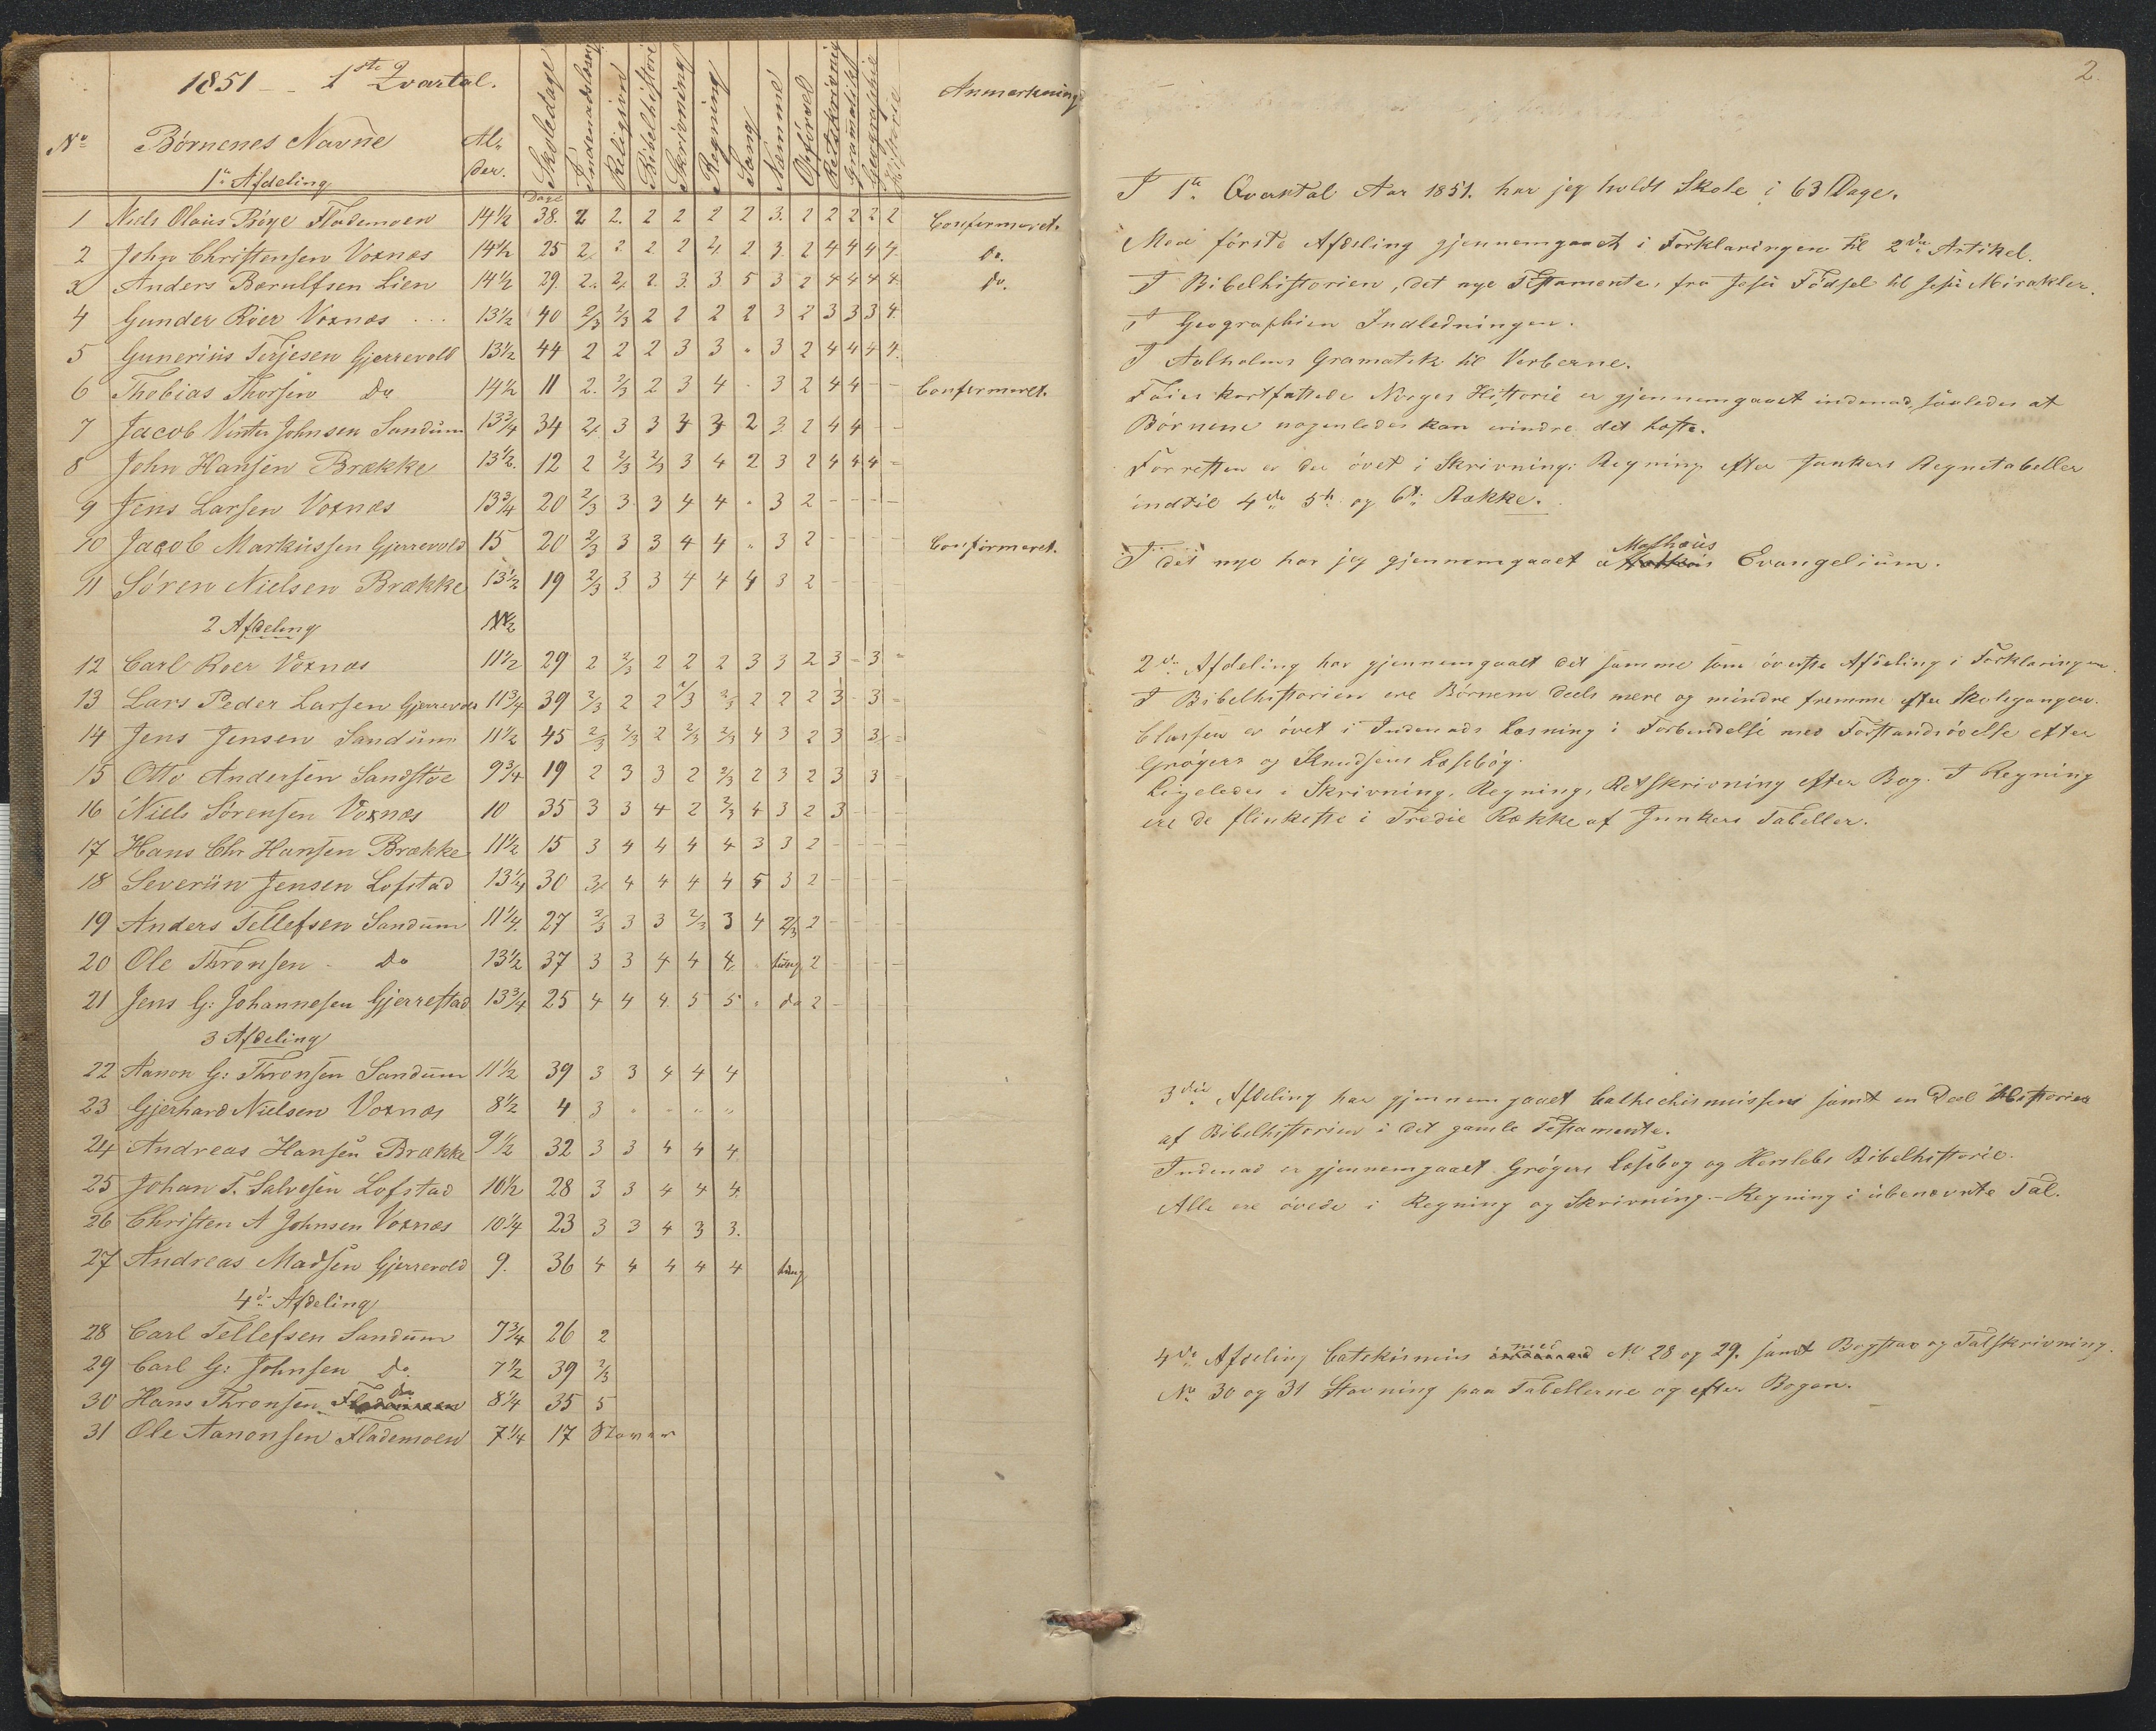 1851 - 1ste Qvartal.
No Børnenes Navne Al,, der. Skoledage Indenadslæsng Religion Bibelhistorie Skrivning Regning Sang Nemme Opførsel Retskrivnig Gramatik Geographie Historie Anmærkning
1e Afdeling
Dage
1 Niels Olaus Bøye Flademoen 14½ 38. 2 2. 2 2 2 2 3. 2 2 2 2 2 Confermeret.
2 John Christensen Voxnæs 14½ 25 2 2 2 2 4 2 3 2 4 4 4 4. do.
3 Anders Bærulfsen Lien 14½ 29. 2. 2. 2. 3. 3 5 3 2 4 4 4 4. do.
4 Gunder Roer Voxnæs 13½ 40 2/3 2/3 2 2 2 2 3 2 3 3 3 4.
5 Gunerius Terjesen Gjerrevold 13½ 44 2 2 2 3 3 " 3 2 4 4 4 4.
6 Thobias Thorsen Do 14½ 11 2. 2/3 2 3 4 - 3 2 4 4 - - Confermeret.
7 Jacob Vinter Johnsen Sandum 13¾ 34 2. 3 3 3 3 2 3. 2 4 4 - -
8 John Hansen Brække 13½. 12 2 2/3 2/3 3 4 2 3 2 4 4 4 =
9 Jens Larsen Voxnæs 13¾ 20 2/3 3. 3 4 4 " 3 2 - - - -
10 Jacob Markussen Gjerrevold 15 20 2/3 3 3 4 4 " 3 2 - - - - Confirmeret.
11 Søren Nielsen Brække 13½ 19 2/3 3 3 4 4 4 3 2 -
2 Afdeling
12 Carl Roer Voxnæs 11½ 29 2 2/3 2 2 2 3 3 2 3 - 3 =
13 Lars Peder Larsen Gjerrevold 11¾ 39 2/3 2 2 2/3 2/3 2 2 2 3 - 3 =
14 Jens Jensen Sandum 11½ 45 2/3 2/3 2 2/3 2/3 4 3 2 3 3 =
15 Otto Andersen Sandstøe 9¾ 19 2 3 3 2 2/3 2 3 2 3 3 =
16 Niels Sørensen Voxnæs 10 35 3 3 4 2 2/3 4 3 2 3 - - -
17 Hans Chr Hansen Brække 11½ 15 3 4 4 4 4 3 3 2 - - - -
18 Severiin Jensen Lofstad 13¼ 30 3. 4 4 4 4 5 3 2 - - - -
19 Anders Tellefsen Sandum 11¼. 27 2/3 3 3 2/3 3 4 2/3 2 - - - -
20 Ole Thronsen - Do 13½ 37 3 3 4 4 4. tung 2 - - -
21 Jens G: Johannesen Gjerrestad 13¾ 25 4 4 4. 5 5 " do 2 -
3 Afdeling
22 Aanon G: Thronsen Sandum 11½ 39 3 3 4 4 4
23 Gjerhard Nielsen Voxnæs 8½ 4 3 " " " "
24 Andreas Hansen Brække 9½ 32 3 3 4 4 4.
25 Johan T. Salvesen Lofstad 10½ 28 3 3 4 4 4.
26 Christen A Johnsen Voxnæs 10¼ 23 3 3 4 3 3.
27 Andreas Madsen Gjerrevold 9. 36 4 4 4 4 4 tung
4de Afdeling
28 Carl Tellefsen Sandum 7¾ 26 2
29 Carl G: Johnsen Do. 7½ 39 2/3
30 Hans Thronsen do 8¼ 35 5
31 Ole Aanonsen Flademoen 7¼ 17 Staver
2.
I 1te Qvartal Aar 1851. har jeg holdt Skole i 63 Dage.
Med første Afdeling gjennemgaaet i Forklaringen til 2den Artikel.
I Bibelhistorien, det nye Testamente, fra Jesu Fødsel til Jesu Mirakler.
I Geographien Indledningen.
I Aalholms Gramatik til Verberne.
Faies kortfattede Norges Historie er gjennemgaaet indenad, saaledes at
Børnene nogenledes kan erindre det Læste.
Forresten er der øvet i Skrivning: Regning efter Junkers Regnetabeller
indtil 4de 5te og 6te Række.
I det nye har jeg gjennemgaaet Mathæus Evangelium.
2den Afdeling har gjennemgaaet det samme som øverste Afdeling i Forklaringen.
I Bibelhistorien ere Børnene deels mere og mindre fremme efter Skolegangen.
Classen er øvet i Indenads Læsning i Forbindelse med Forstandsøvelse efter
Grøgers og Knudsens Læsebog.
Ligeledes i Skrivning, Regning, Retskrivning efter Bog. I Regning
ere de flinkeste i Tredie Række af Junkers Tabeller.
3die Afdeling har gjennemgaaet Cathechismussen samt en Deel Historier
af Bibelhistorien i det gamle Testamente.
Indenad er gjennemgaaet Grøgers Læsebog og Herslebs Bibelhistorie.
Alle ere øvede i Regning og Skrivning.- Regning i ubenævnte Tal.
4de Afdeling Catekismus med No 28 og 29. samt Bogstav og Talskrivning.
No 30 og 31 Stavning paa Tabellerne og efter Bogen.